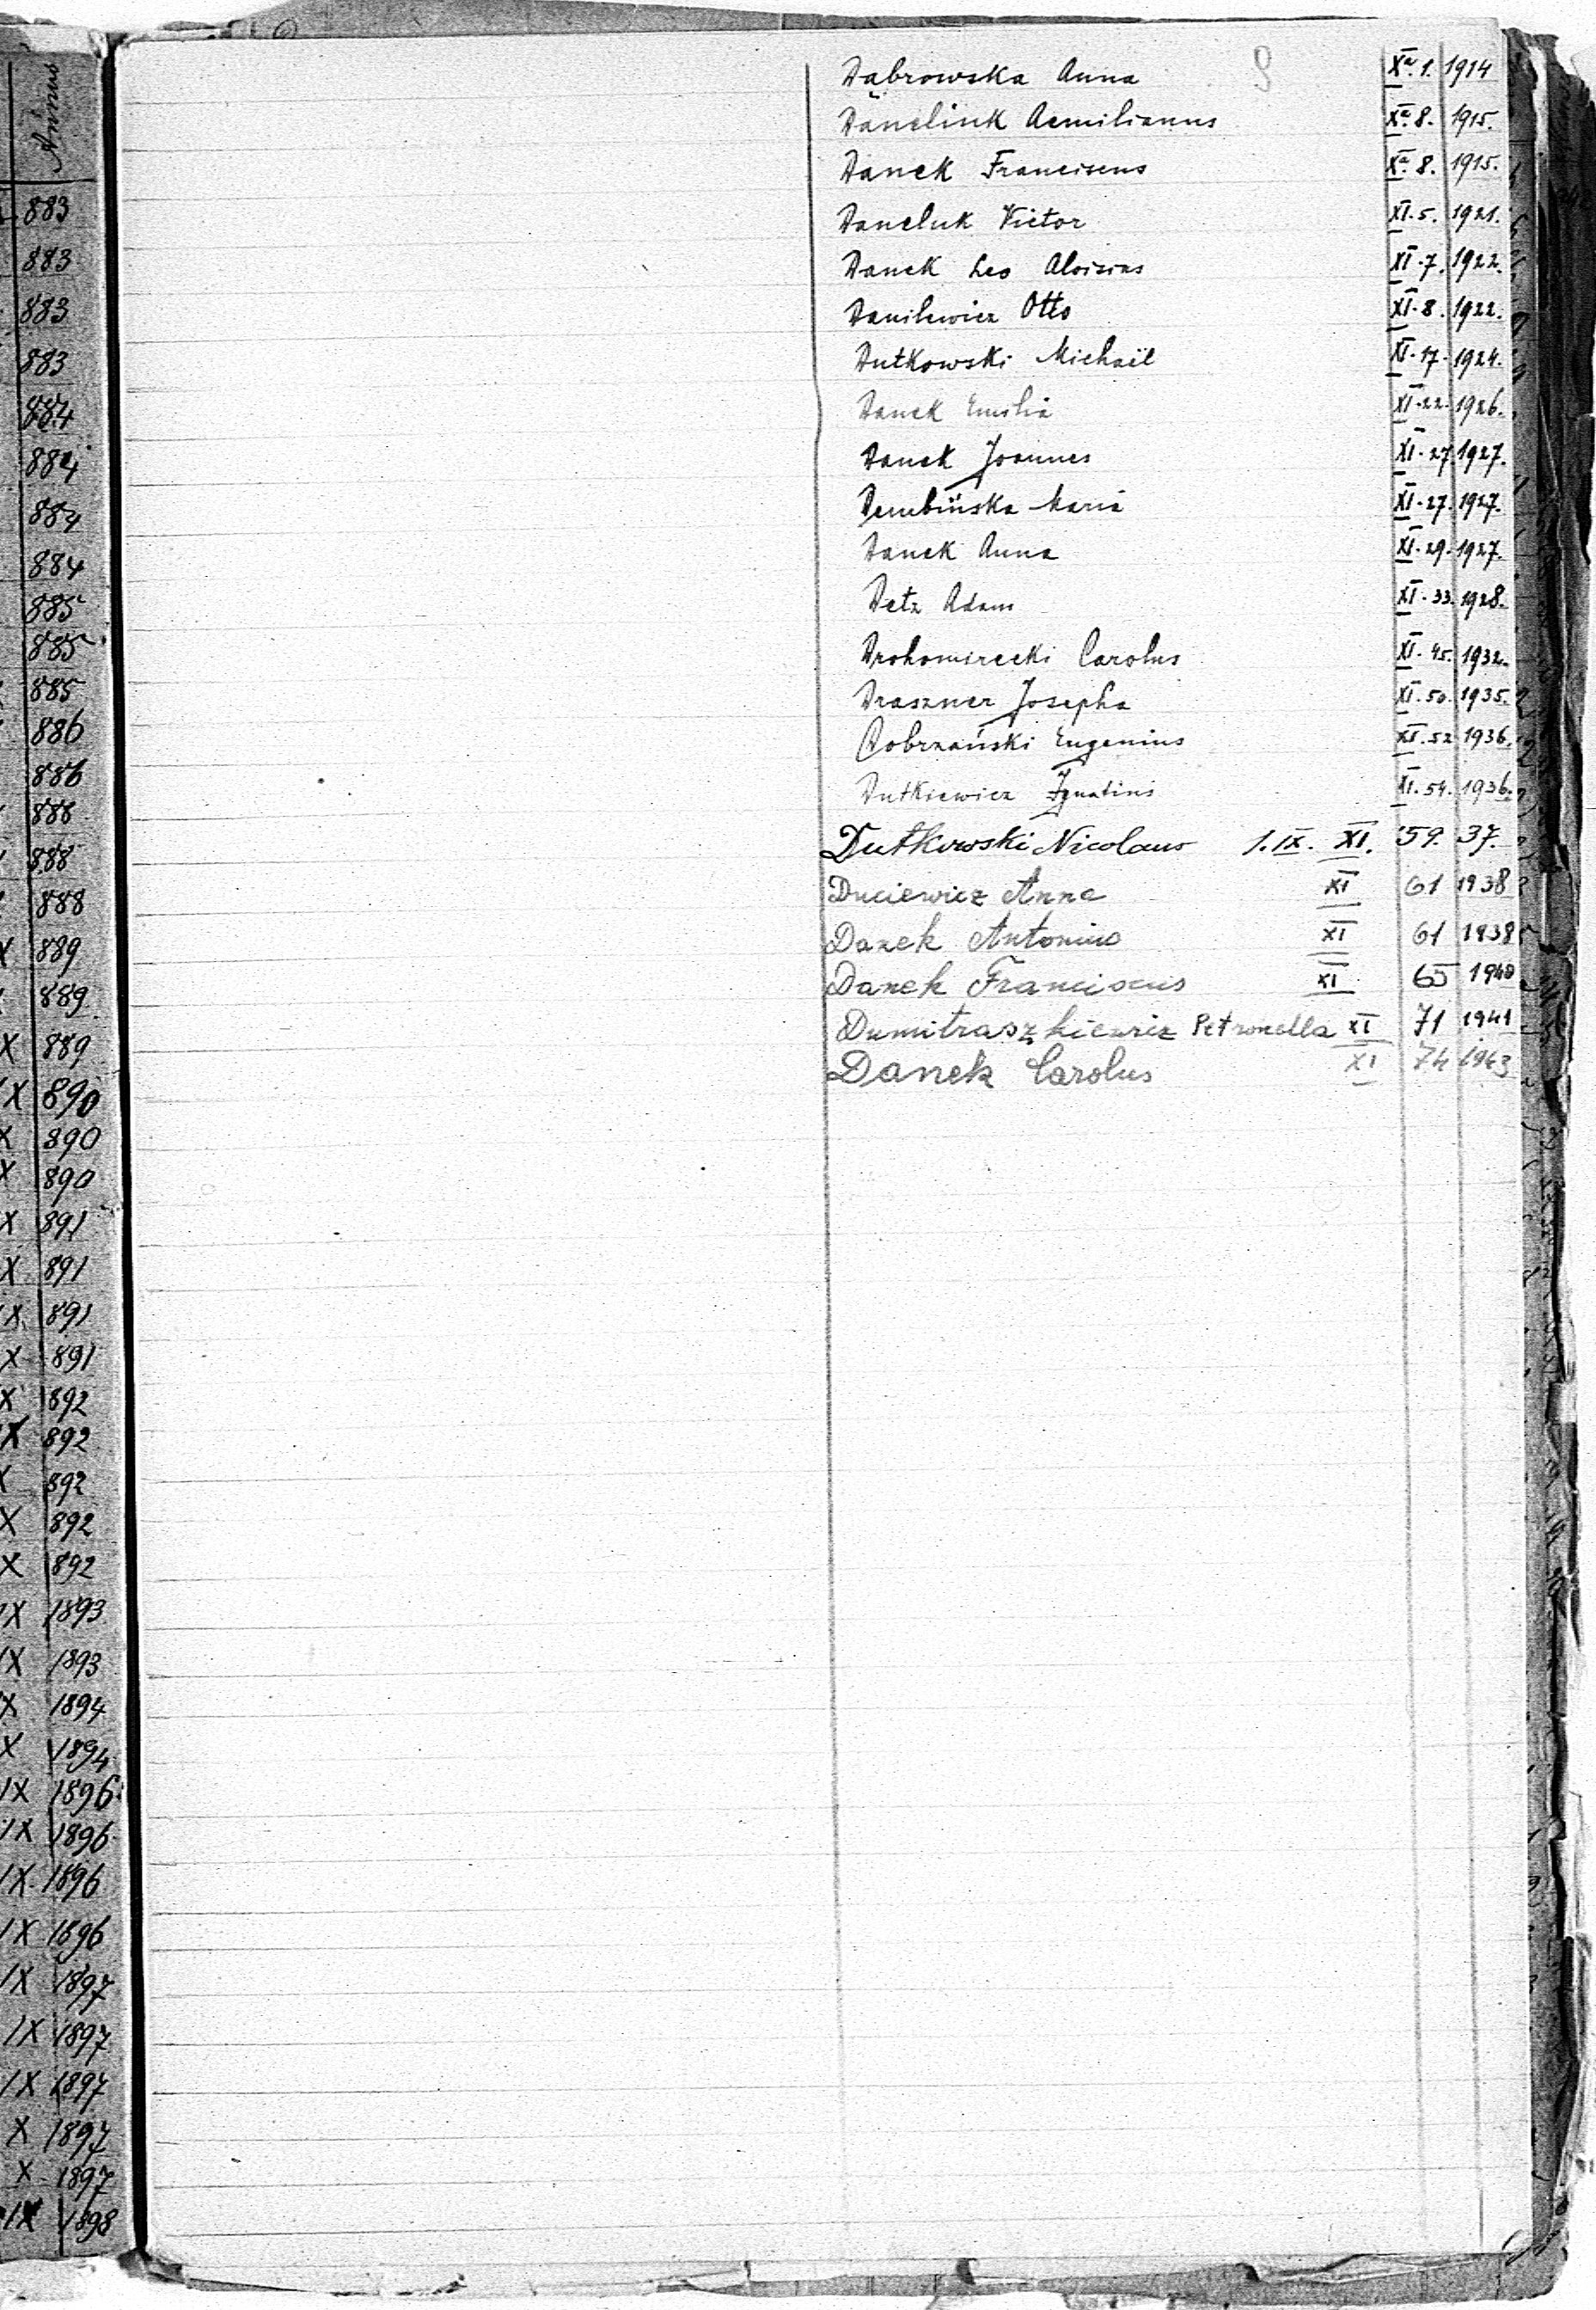 Annus
883
883
883
883
884
884
884
884
885
885
885
886
886
888
888
888
X 889
889
X 889
IX 890
X 890
X 890
X 891
X 891
IX 891
X 891
X 1892
IX 892
X 892
X 892
X 1892
IX 1893
IX 1893
X 1894
X 1894
IX 1896
IX 1896
IX 1896
IX 1896
IX 1897
IX 1897
IX 1897
X 1897
X 1897
IX 1898
Dąbrowska Anna Xa. 1. 1914
Danelink Aemilianus Xa. 8. 1915.
Danek Franciscus Xa. 8. 1915.
Daneluk Victor XI. 5. 1921.
Danek Leo Aloisius XI. 7. 1922.
Danilewicz Otto XI. 8. 1922.
Dutkowski Michaël XI. 17. 1924.
Danek Emilia XI. 22. 1926.
Danek Joannes XI. 27. 1927.
Dembińska Maria XI. 27. 1927.
Danek Anna XI. 29. 1927.
Detz Adam XI. 33. 1928.
Drohomirecki Carolus XI. 45. 1932.
Draszner Josepha XI. 50. 1935.
Dobrzański Eugenius XI. 52 1936.
Dutkiewicz Ignatius XI. 54. 1936.
Dutkowski Nicolaus 1. IX. XI. 59. 37.
Duciewicz Anna XI 61 1938
Danek Antonius XI 61 1938
Danek Franciscus XI 65 1940
Dumitraszkiewicz Petronella XI 71 1941
Danek Carolus XI 74 1943